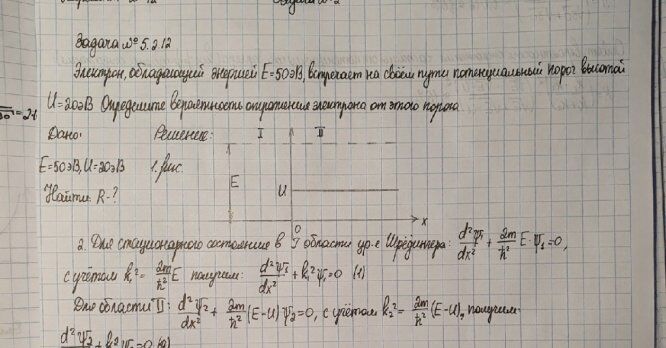 Задача №5.2.12
Электрон, обладающей энергией E=50эВ, встречает на своём пути потенциальный порог высотой
U=20эВ Определите вероятность отражения электрона от этого порога.
Дано: Решение: I II
E=50эВ, U=20эВ 1. рис. E U
Найти: R-?
0 x
2. Для стационарного состояние в I области ур-е Шрёдингера: d²ψ₁/dx² + 2m/ħ² E·ψ₁=0,
с учётом k₁²= 2m/ħ² E получим: d²ψ₁/dx² + k₁²ψ₁=0 (1)
Для области II: d²ψ₂/dx² + 2m/ħ² (E-U)ψ₂=0, с учётом k₂²= 2m/ħ² (E-U), получим:
d²ψ₂ + k₂²ψ₂=0 (2)